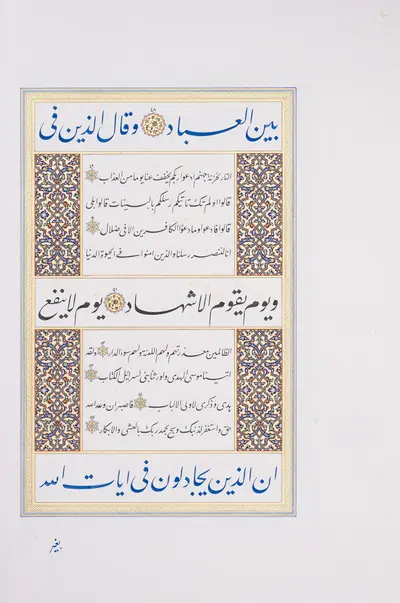 بين العباد ۴۸ وقال الذين فى
النار لخزنة جهنم ادعوا ربكم يخفف عنا يوما من العذاب
قالوا اولم تك تاتيكم رسلكم بالبينات قالوا بلى
قالوا فادعوا وما دعؤا الكافرين الا فى ضلال
انا لننصر رسلنا والذين امنوا فى الحيوة الدنيا
ويوم يقوم الاشهاد يوم لا ينفع
الظالمين معذرتهم ولهم اللعنة ولهم سوء الدار ولقد
اتينا موسى الهدى واورثنا بنى اسرائيل الكتاب
هدى وذكرى لاولى الالباب فاصبر ان وعد الله
حق واستغفر لذنبك وسبح بحمد ربك بالعشى والابكار
ان الذين يجادلون فى ايات الله
بغير